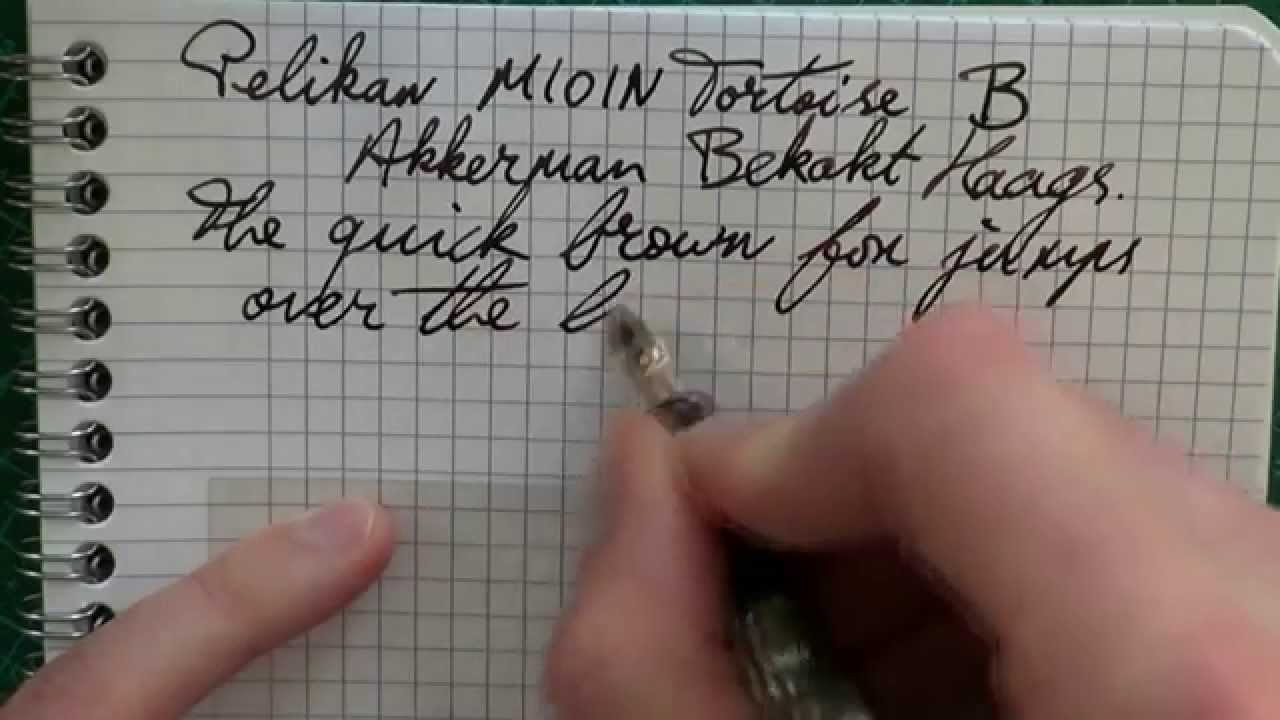 Pelikan M101N Tortoise B
Akkerman Bekakt Haags.
The quick brown fox jumps
over the l